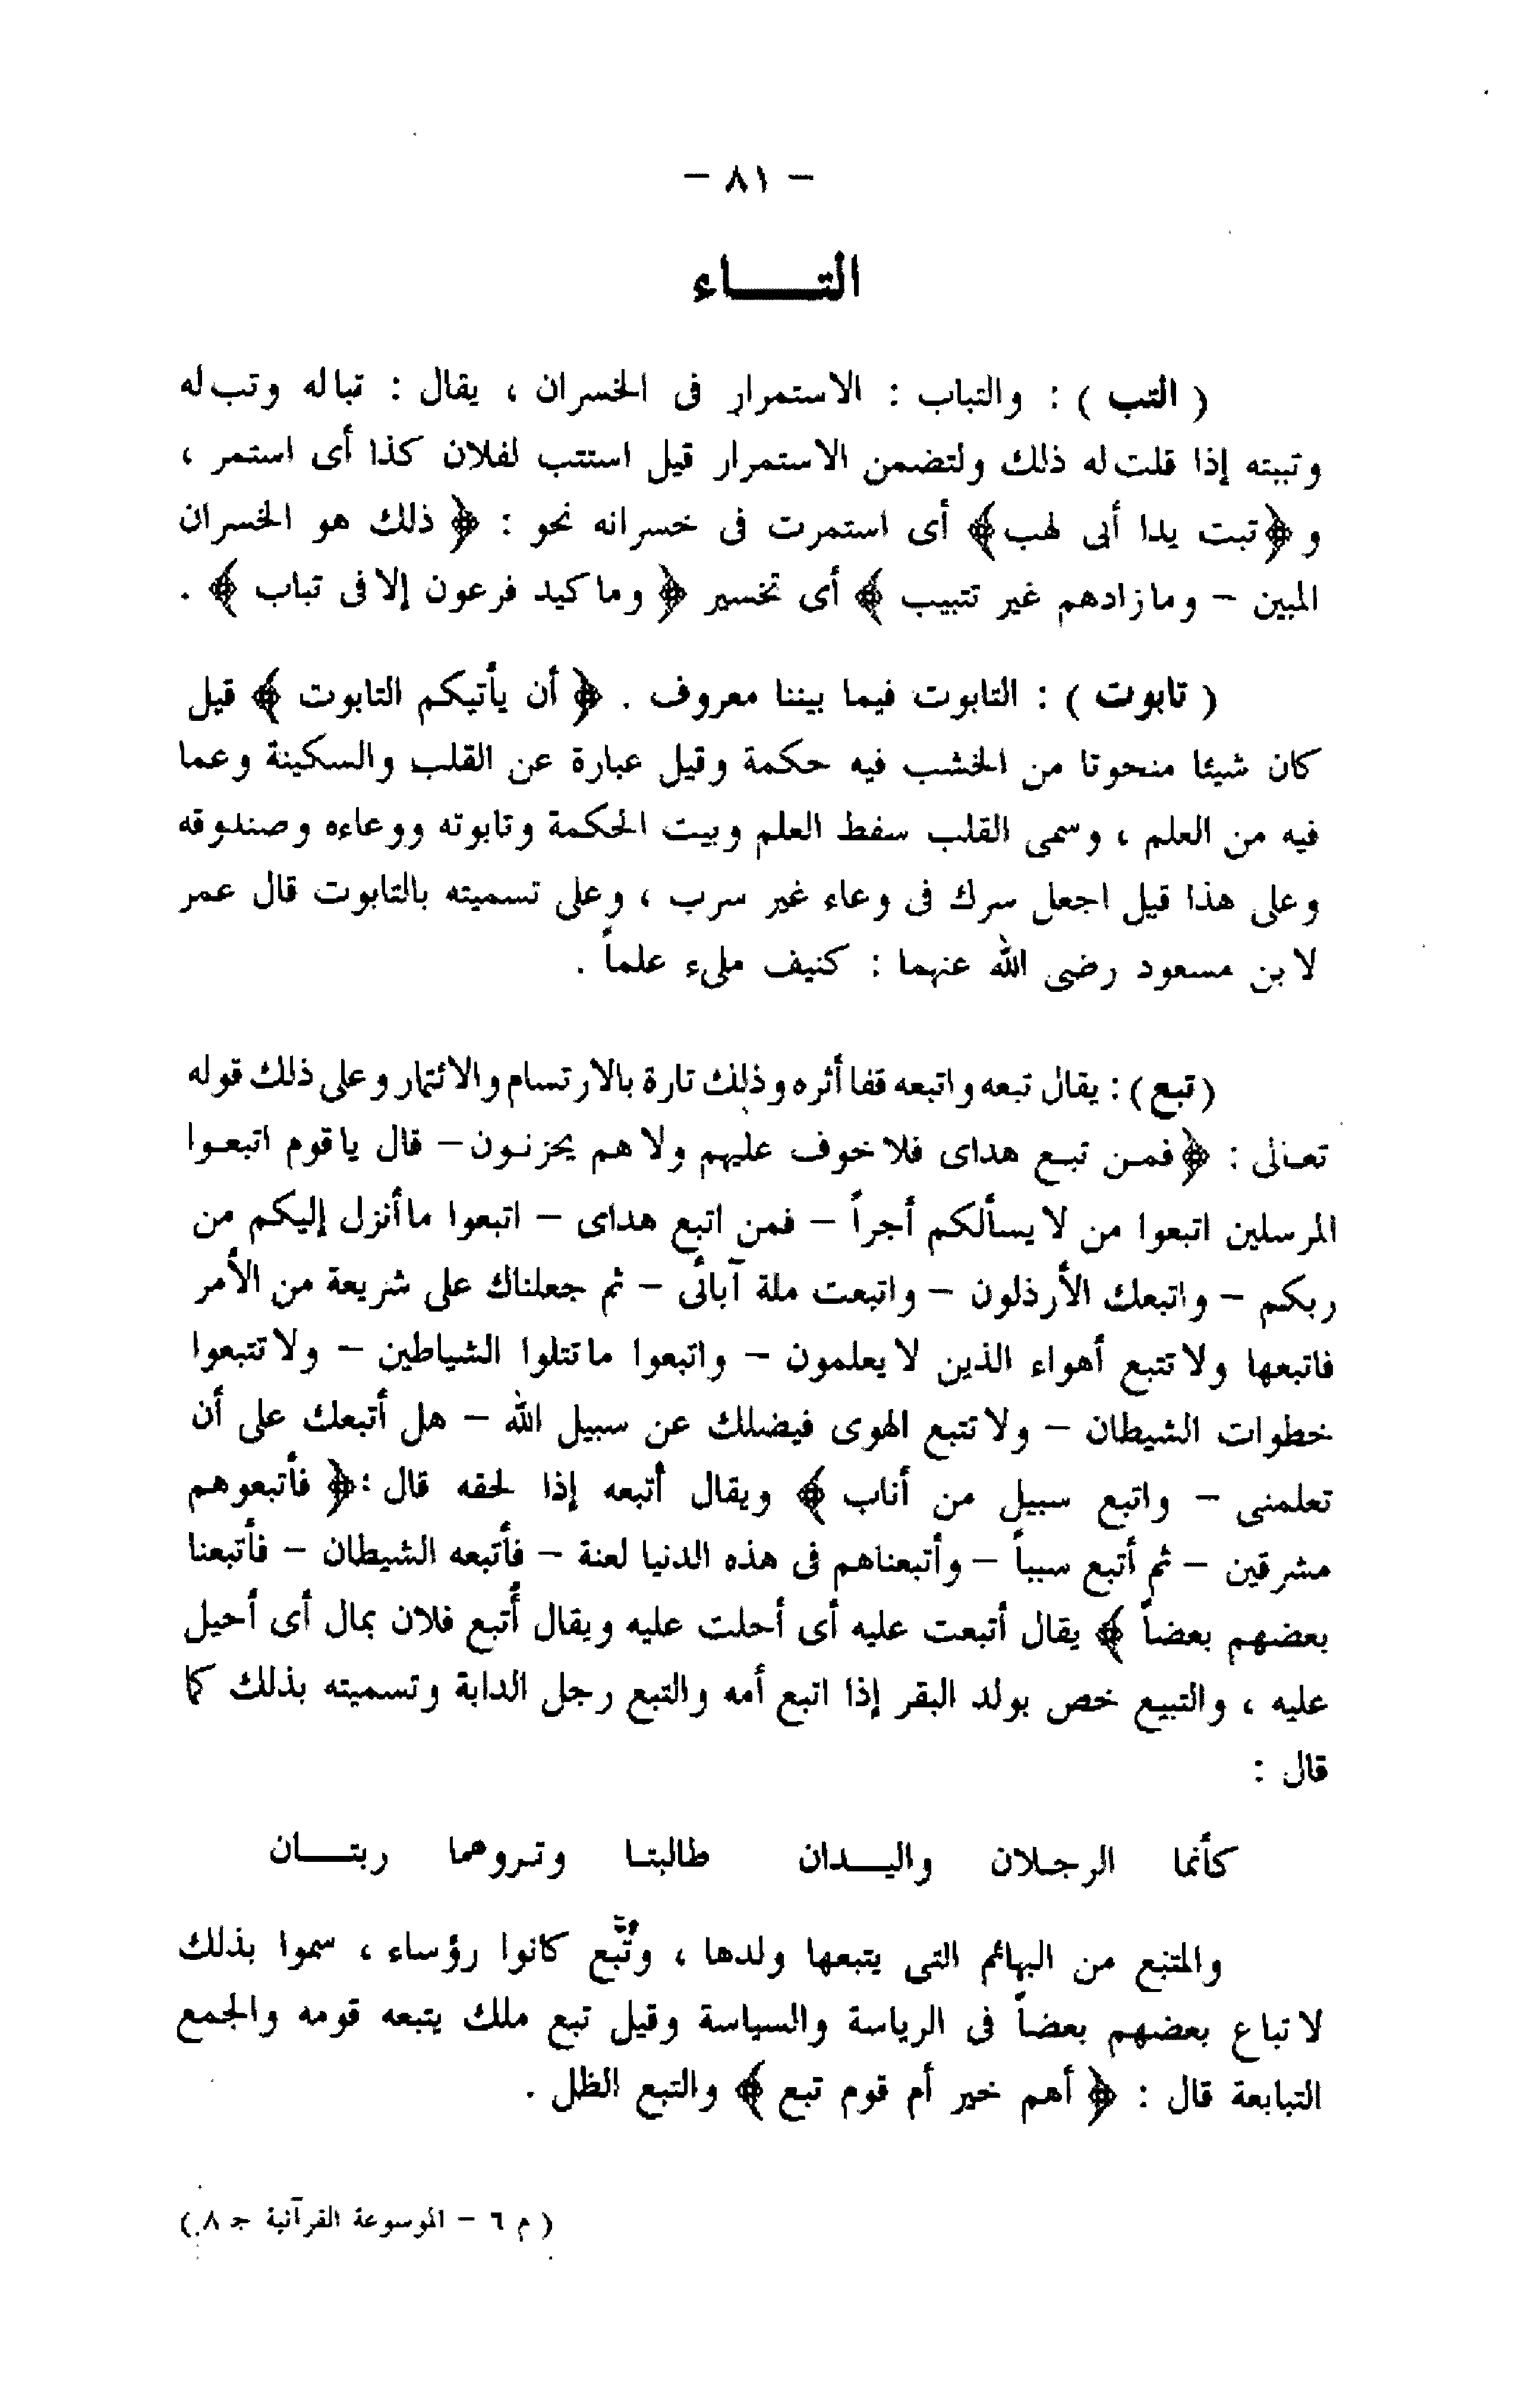 – ٨١ –
التـــاء
( التب ) : والتباب : الاستمرار فى الخسران ، يقال : تبا له وتب له
وتببته إذا قلت له ذلك ولتضمن الاستمرار قيل استتب لفلان كذا أى استمر ،
و ﴿ تبت يدا أبى لهب ﴾ أى استمرت فى خسرانه نحو : ﴿ ذلك هو الخسران
المبين – وما زادهم غير تتبيب ﴾ أى تخسير ﴿ وما كيد فرعون إلا فى تباب ﴾ .
( تابوت ) : التابوت فيما بيننا معروف . ﴿ أن يأتيكم التابوت ﴾ قيل
كان شيئا منحوتا من الخشب فيه حكمة وقيل عبارة عن القلب والسكينة وعما
فيه من العلم ، وسمى القلب سفط العلم وبيت الحكمة وتابوته ووعاءه وصندوقه
وعلى هذا قيل اجعل سرك فى وعاء غير سرب ، وعلى تسميته بالتابوت قال عمر
لابن مسعود رضى الله عنهما : كنيف ملىء علماً .
( تبع ) : يقال تبعه واتبعه قفا أثره وذلك تارة بالارتسام والائتمار وعلى ذلك قوله
تعـالى : ﴿ فمـن تبـع هداى فلا خوف عليهم ولا هم يحزنـون – قال ياقوم اتبعـوا
المرسلين اتبعوا من لا يسألكم أجراً – فمن اتبع هداى – اتبعوا ما أنزل إليكم من
ربكم – واتبعك الأرذلون – واتبعت ملة آبائى – ثم جعلناك على شريعة من الأمر
فاتبعها ولا تتبع أهواء الذين لا يعلمون – واتبعوا ما تتلوا الشياطين – ولا تتبعوا
خطوات الشيطان – ولا تتبع الهوى فيضلك عن سبيل الله – هل أتبعك على أن
تعلمنى – واتبع سبيل من أناب ﴾ ويقال أتبعه إذا لحقه قال : ﴿ فأتبعوهم
مشرقين – ثم أتبع سبباً – وأتبعناهم فى هذه الدنيا لعنة – فأتبعه الشيطان – فأتبعنا
بعضهم بعضاً ﴾ يقال أتبعت عليه أى أحلت عليه ويقال أُتبع فلان بمال أى أحيل
عليه ، والتبيع خص بولد البقر إذا اتبع أمه والتبع رجل الدابة وتسميته بذلك كما
قال :
كأنما الرجـلان واليـــدان طالبتـا وتـروهما ربتـــان
والمتبع من البهائم التى يتبعها ولدها ، وتُبَّع كانوا رؤساء ، سموا بذلك
لاتباع بعضهم بعضاً فى الرياسة والسياسة وقيل تبع ملك يتبعه قومه والجمع
التبابعة قال : ﴿ أهم خير أم قوم تبع ﴾ والتبع الظل .
( م ٦ – الموسوعة القرآنية جـ ٨ )